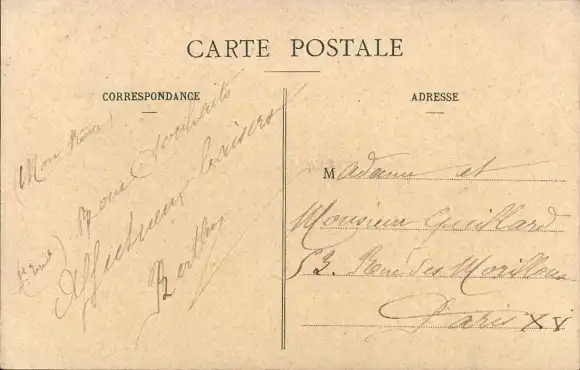 CARTE POSTALE
CORRESPONDANCE
Bons Souhaits
Affectueux baisers
Berthe
ADRESSE
Madame et
Monsieur Guillard
53. Rue des Morillons
Paris XV